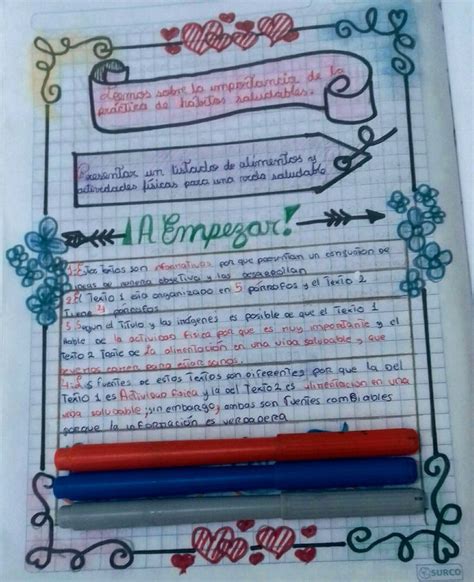 Leemos sobre la importancia de la
práctica de hábitos saludables.
Presentar un listado de alimentos y
actividades físicas para una vida saludable
¡A Empezar!
1. Estos textos son informativos por que presentan un conjunto de
ideas de manera objetiva y las desarrollan
2. El Texto 1 esta organizado en 5 párrafos y el Texto 2
tiene 4 párrafos.
3. Según el Título y las imágenes es posible de que el Texto 1
Hable de la actividad física por que es muy importante y el
Texto 2 Trate de la alimentación en una vida saludable, y que
para
4. Las fuentes de estos Textos son diferentes por que la del
Texto 1 es Actividad física y la del Texto 2 es alimentación en una
vida saludable; sin embargo, ambas son fuentes confiables
porque la información es verdadera
SURCO